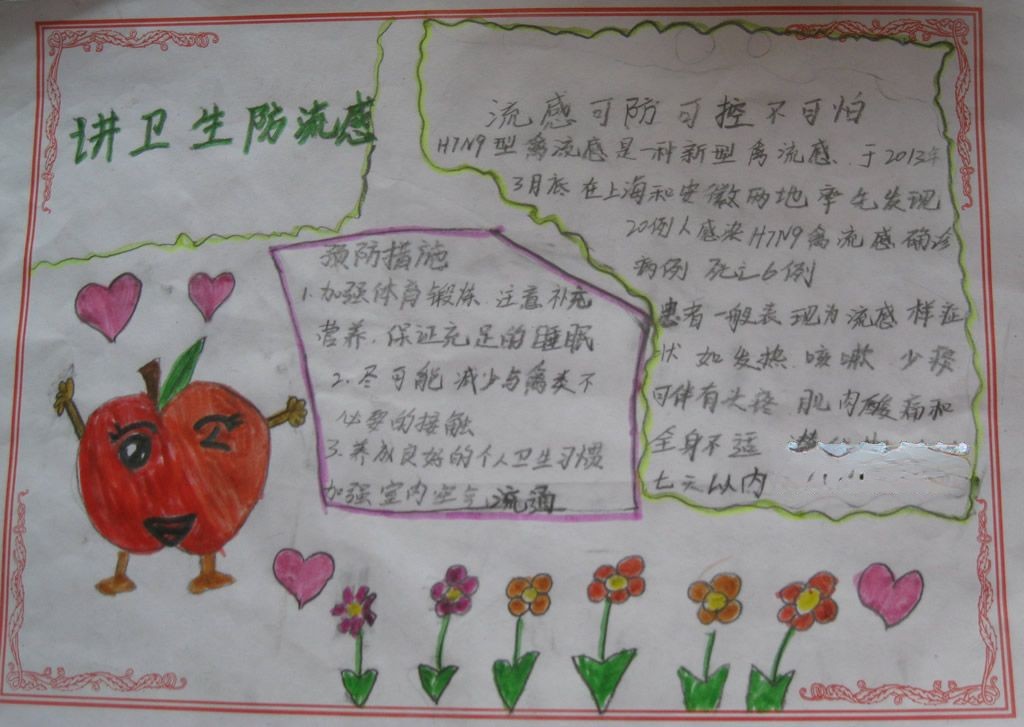 讲卫生防流感
流感可防可控不可怕
H7N9型禽流感是一种新型禽流感、于2013年
3月底在上海和安徽两地率先发现
20例人感染H7N9禽流感确诊
病例 死亡6例
患者一般表现为流感样症
状 如发热.咳嗽.少痰
可伴有头疼 肌肉酸痛和
全身不适
七天以内
预防措施
1.加强体育锻炼、注意补充
营养.保证充足的睡眠
2.尽可能减少与禽类不
必要的接触
3.养成良好的个人卫生习惯
加强室内空气流通